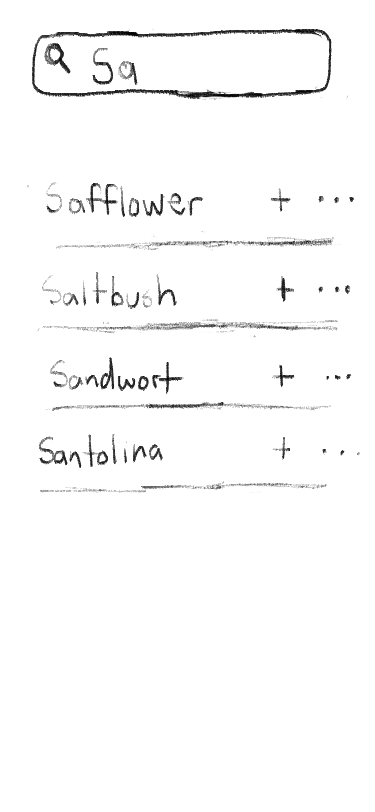 Sa
Safflower + ...
Saltbush + ...
Sandwort + ...
Santolina + ...